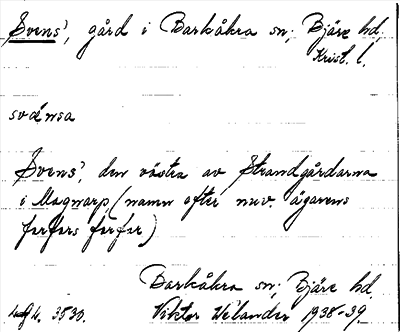 Svens', gård i Barkåkra sn; Bjäre hd.
Krist. l.
svä́nsa
Svens', den västra av Strandgårdarna
i Magnarp, (namn efter nuv. ägarens
farfars farfar)
Barkåkra sn; Bjäre hd.
3530. Viktor Velander 1938-39